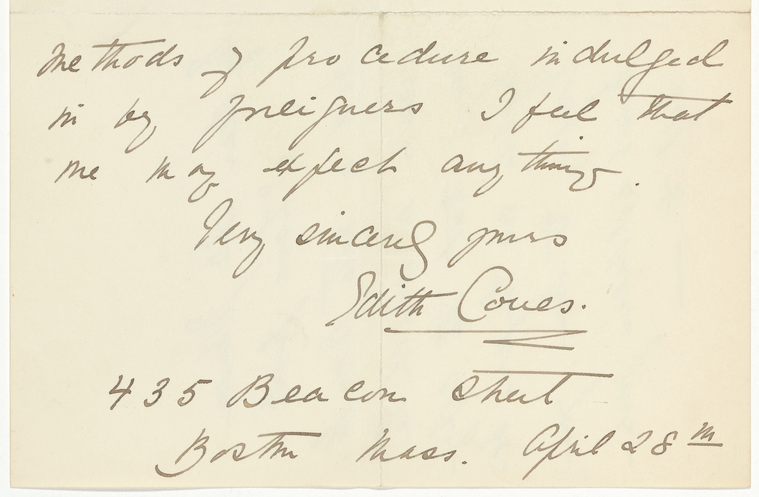 methods of procedure indulged
in by foreigners I feel that
we may expect anything.
Very sincerely yours
Edith Coues.
435 Beacon Street
Boston Mass. April 28th